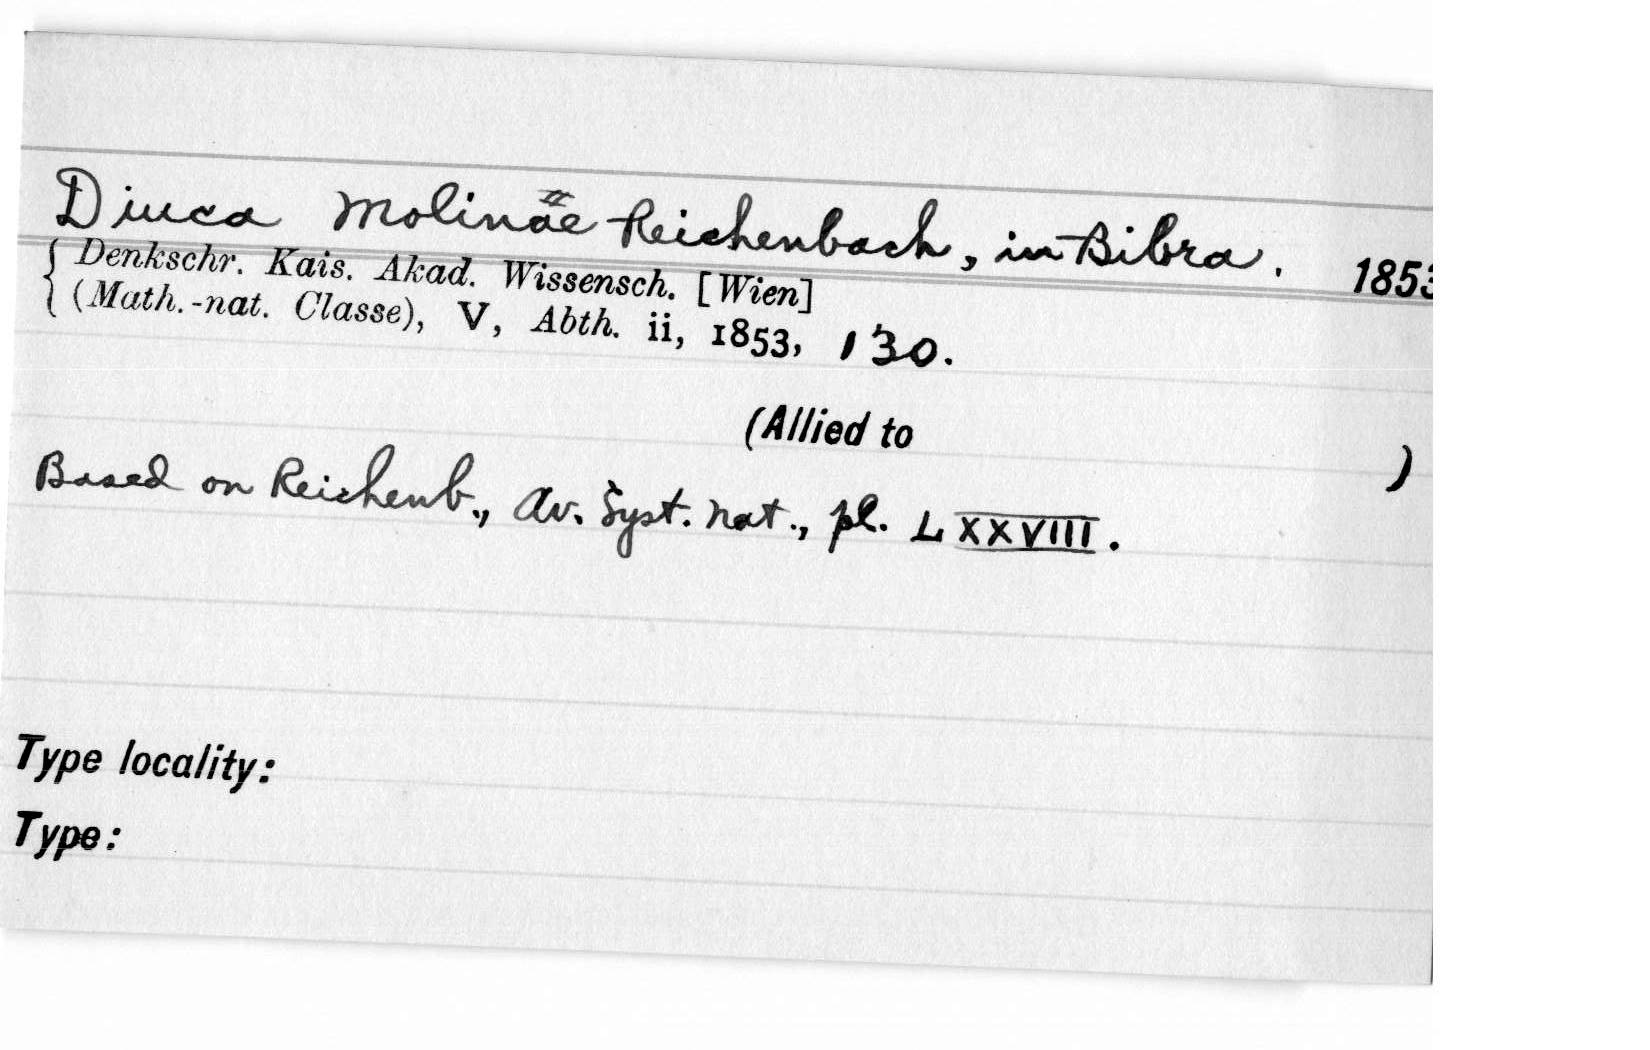 Diuca Molinae Reichenbach, in Bibra. 1853
{ Denkschr. Kais. Akad. Wissensch. [Wien]
(Math.-nat. Classe), V, Abth. ii, 1853, 130.
(Allied to )
Based on Reichenb., Av. Syst. Nat., pl. LXXVIII.
Type locality:
Type: